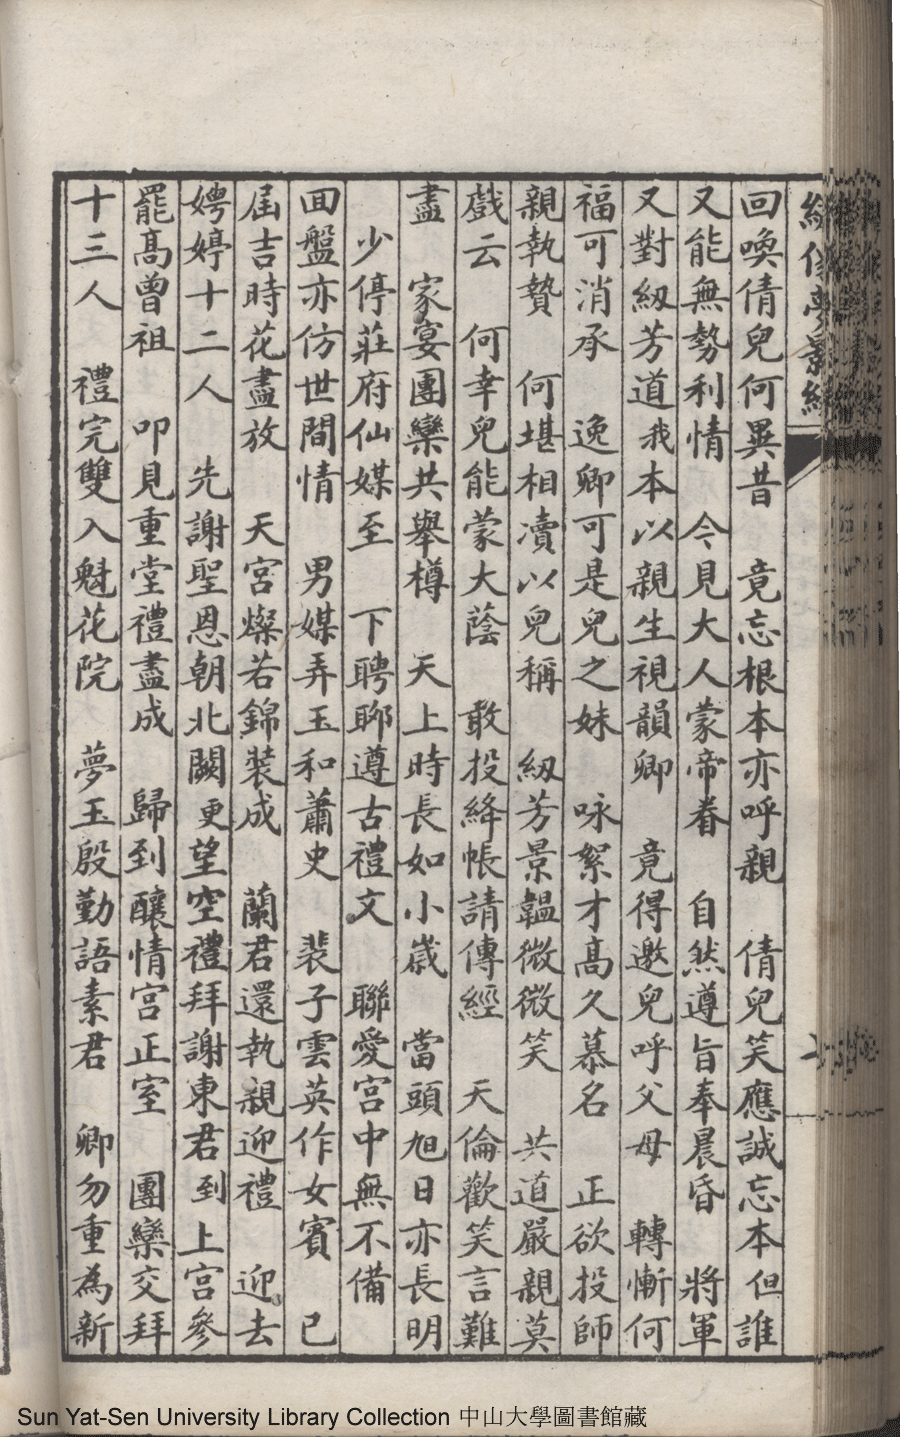 回喚倩兒何異昔　竟忘根本亦呼親　倩兒笑應誠忘本但誰
又能無勢利情　今見大人蒙帝眷　自然遵旨奉晨昏　將軍
又對紉芳道我本以親生視韻卿　竟得邀兒呼父母　轉慚何
福可消承　逸卿可是兒之妹　咏絮才高久慕名　正欲投師
親執贄　何堪相瀆以兒稱　紉芳景韞微微笑　共道嚴親莫
戲云　何幸兒能蒙大蔭　敢投絳帳請傳經　天倫歡笑言難
盡　家宴團欒共舉樽　天上時長如小歲　當頭旭日亦長明
少停莊府仙媒至　下聘聊遵古禮文　聯愛宮中無不備
回盤亦仿世間情　男媒弄玉和蕭史　裴子雲英作女賓　已
屆吉時花盡放　天宮燦若錦裝成　蘭君還執親迎禮　迎去
娉婷十二人　先謝聖恩朝北闕更望空禮拜謝東君到上宮參
罷高曾祖　叩見重堂禮盡成　歸到釀情宮正室　團欒交拜
十三人　禮完雙入魁花院　夢玉殷勤語素君　卿勿重為新
Sun Yat-Sen University Library Collection 中山大學圖書館藏